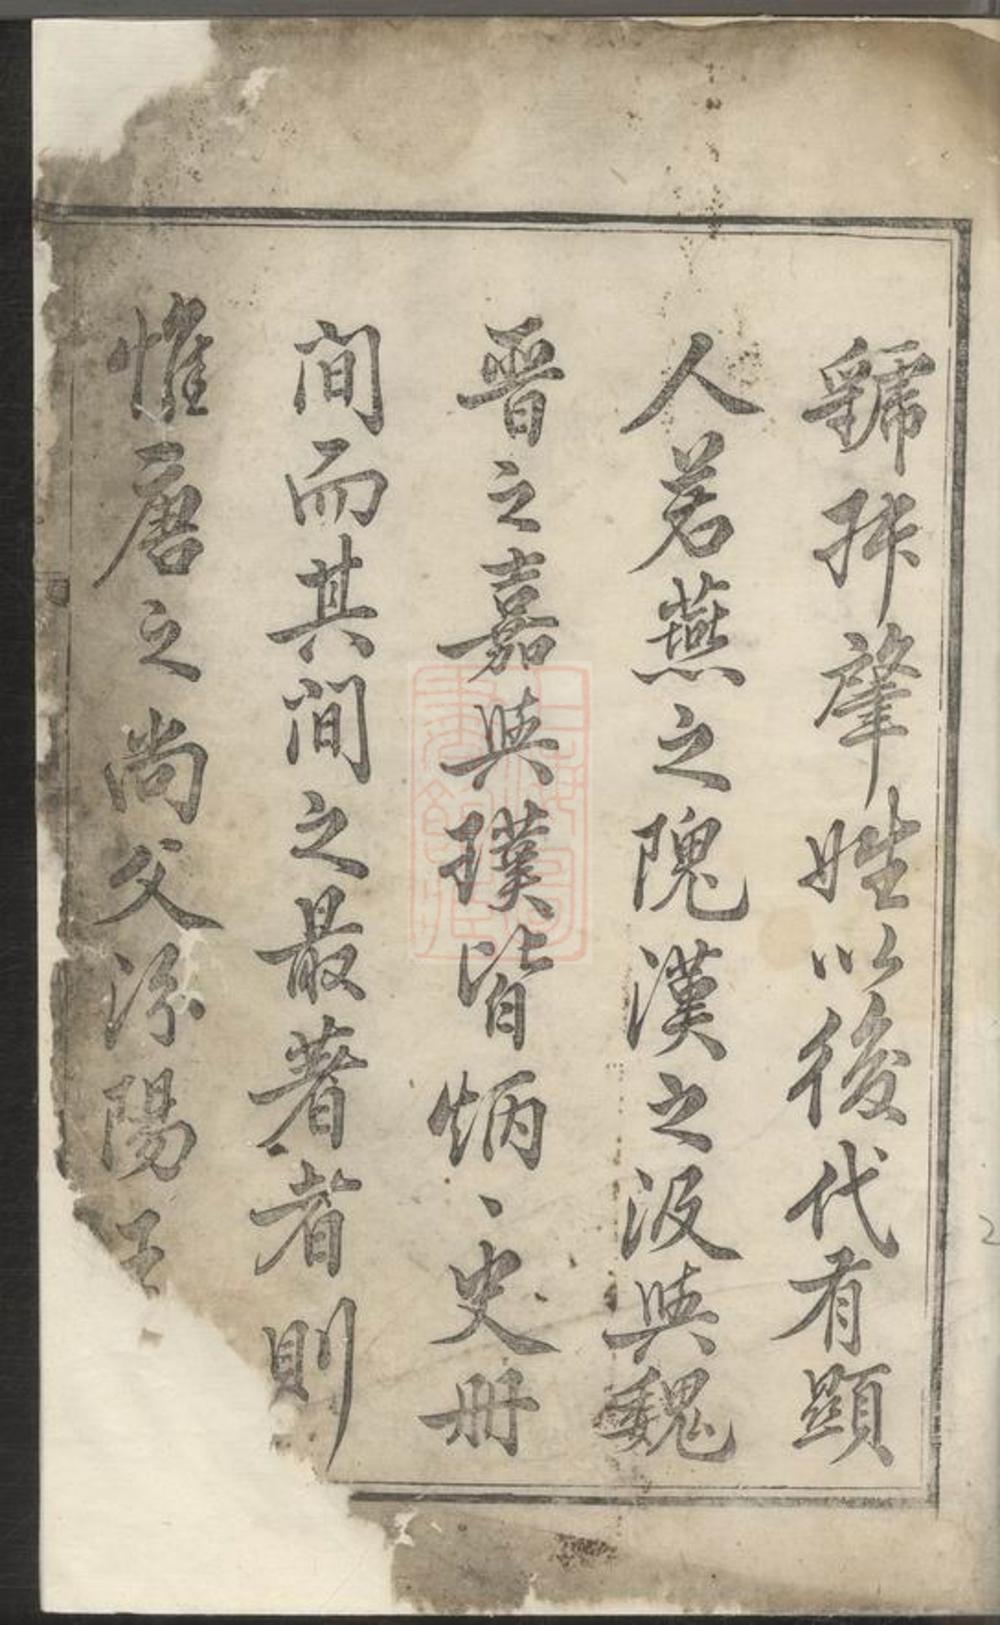 虢叔肇姓以後代有顯
人若燕之隗漢之汲與魏
晋之嘉與璞皆炳、史册
間而其間之最著者則
惟唐之尚父汾陽王